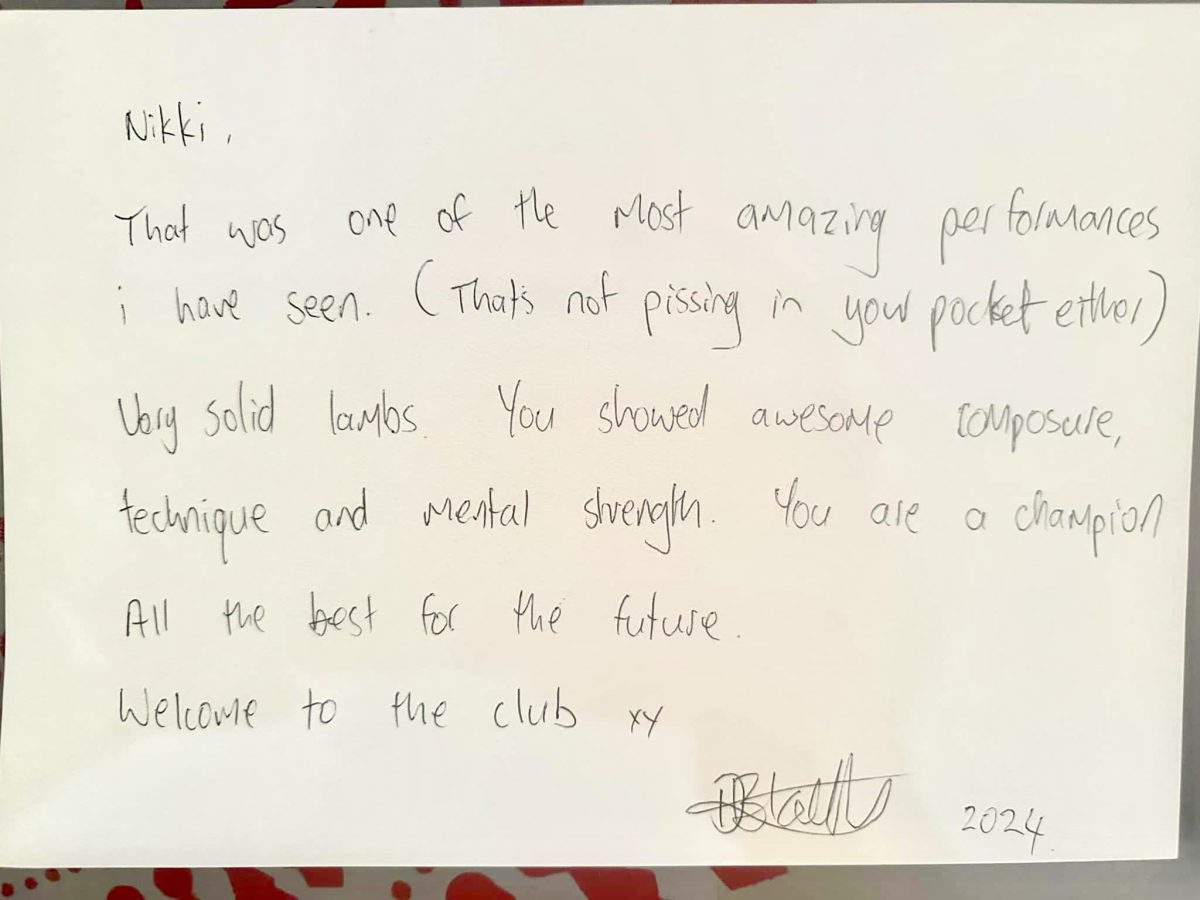 Nikki,
That was one of the most amazing performances
i have seen. (That's not pissing in your pocket either)
Very solid lambs. You showed awesome composure,
technique and mental strength. You are a champion
All the best for the future.
Welcome to the club xy
2024.